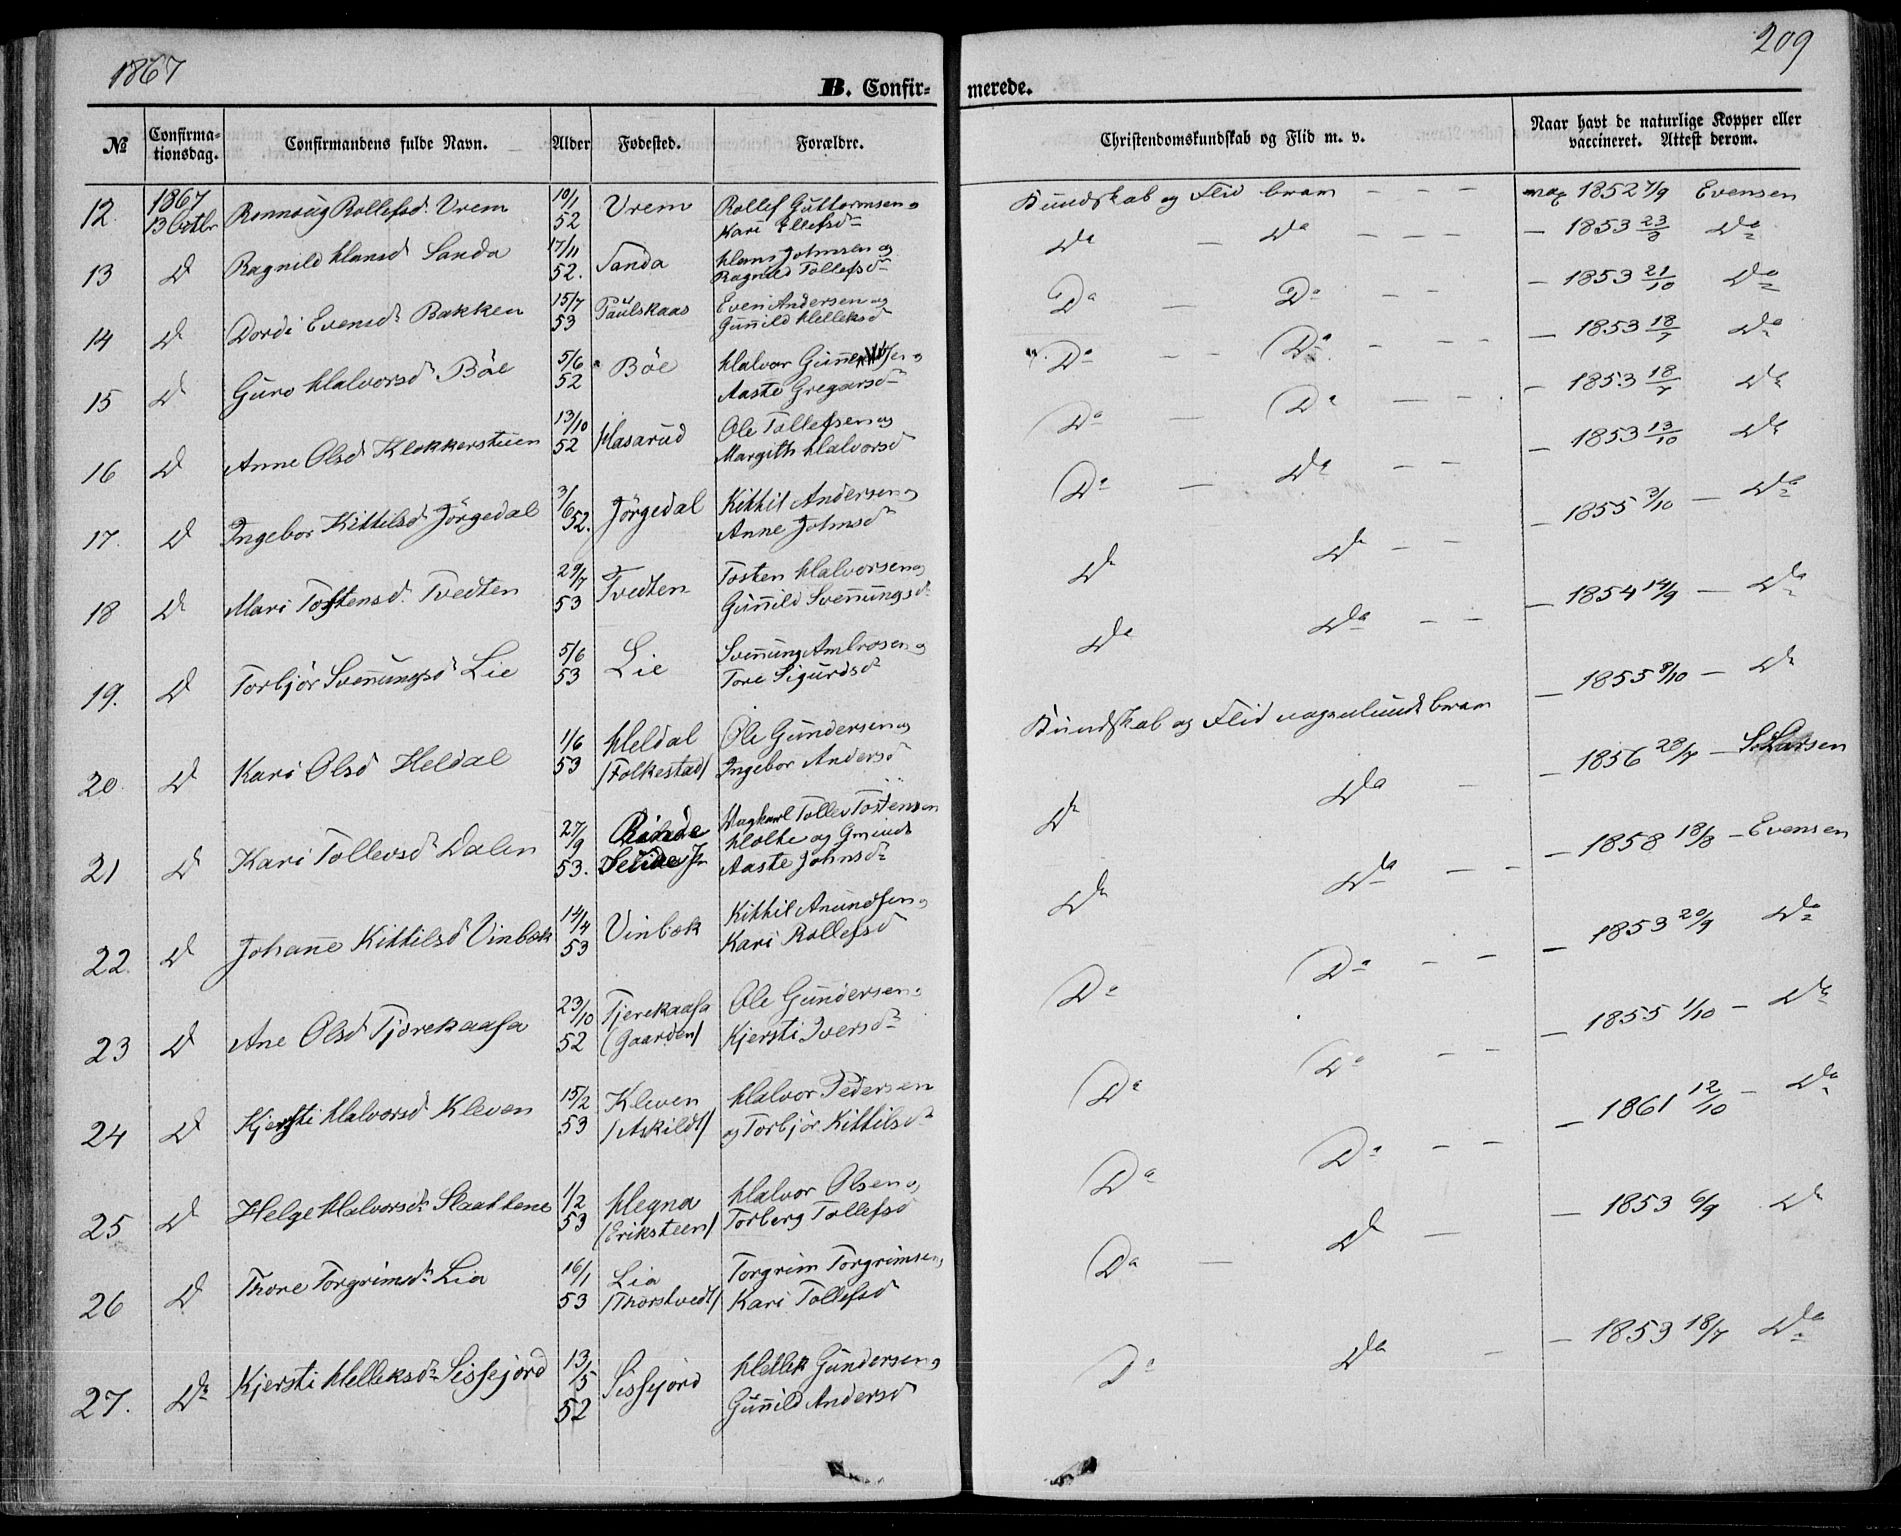 1867
209
B. Confirmerede.
№ Confirmationsdag. Confirmandens fulde Navn. Alder Fødested. Forældre. Christendomskundskab og Flid m. v. Naar havt de naturlige Kopper eller vaccineret. Attest derom.
12. 1867 13 Octbr Ronnoug Rollefsd. Vrem 10/1 52 Vrem Rollef Guttormsen og Kari Ellefsd Kundskab og Flid 1852 7/9 Evensen
13 D Ragnild Hansd Sanda 17/11 52. Sanda Hans Johnsen og Ragnild Tollefsd Da — Da — — — — 1853 23/8 Da
14 D Dordi Evensd Bakken 15/7 53 Paulskaas Even Andersen og Gunnild Helleksd Da — Da — — — 1853 21/10 Da
15 D Guro Halvorsd Böe 5/6 52 Böe Halvor Aaste Gregarsd Da — — Da — — — — 1853 18/7 Da
16 D Anne Olsd Klokkersteen 13/10 52 Hasarud Ole Tollefsen og Margith Halvorsd Da — Da — — — 1853 18/7 Da
17. D Ingebor Kittilsd Jörgedal 3/6 52. Jörgedal Kittil Andersen og Anne Johnsd Da — Da — — — 1853 13/10 Da
18 D Mari Tostensd. Tvedten 29/7 53 Tvedten Tosten Halvorsen og Gunnild Svennungsd Da Da — — — 1855 3/10 — Da
19. D Torbjör Svennungsd Lie 5/6 53 Lie Svennung Ambrosen og Tore Sigurdsd Da Da — — — 1854 14/9 — Da
20. D Kari Olsd Heldal 1/6 53 Heldal /Folkestad/ Ole Gundersen og Ingebor Andersd Kundskab og Flid — 1855 8/10 — Da
21 D Kari Tollevsd Dalen 27/9 53. Tollev Tostensen Holte og Aaste Johnsd Da Da — — 1856 28/7 — S. Larsen
22. D Johanne Kittilsd Vinbæk 14/4 53 Vinbæk Kittil Anundsen og Kari Rollefsd Da Da — — — 1858 18/8 — Evensen
23 D Ane Olsd Tjörekaasa 23/10 52 Tjerekaasa (Gaarden) Ole Gundersen og Kjersti Iversd Da Da — — — 1853 20/9 Da
24 D Kjersti Halvorsd Kleven 15/2 53 Kleven /Askildt/ Halvor Pedersen og Torbjör Kittilsd Da Da — — — 1855 1/10 — Da
25 D Helge Halvorsd Slaattene 1/2 53 Hegna (Eriksteen) Halvor Olsen og Torberg Tollefsd Da Da — — — 1861 12/10 — Da
26 D Thore Torgrimsd Lia 16/1 53 Lia /Thorstvedt/ Torgrim Torgrimsen og Kari Tollefsd Da — D — — 1853 6/9 Da
27. Da Kjersti Helleksd Sissejord 13/5 52 Sissejord Hellek Gundersen og Gunnild Andersd Da Da — — 1853 18/7 Da